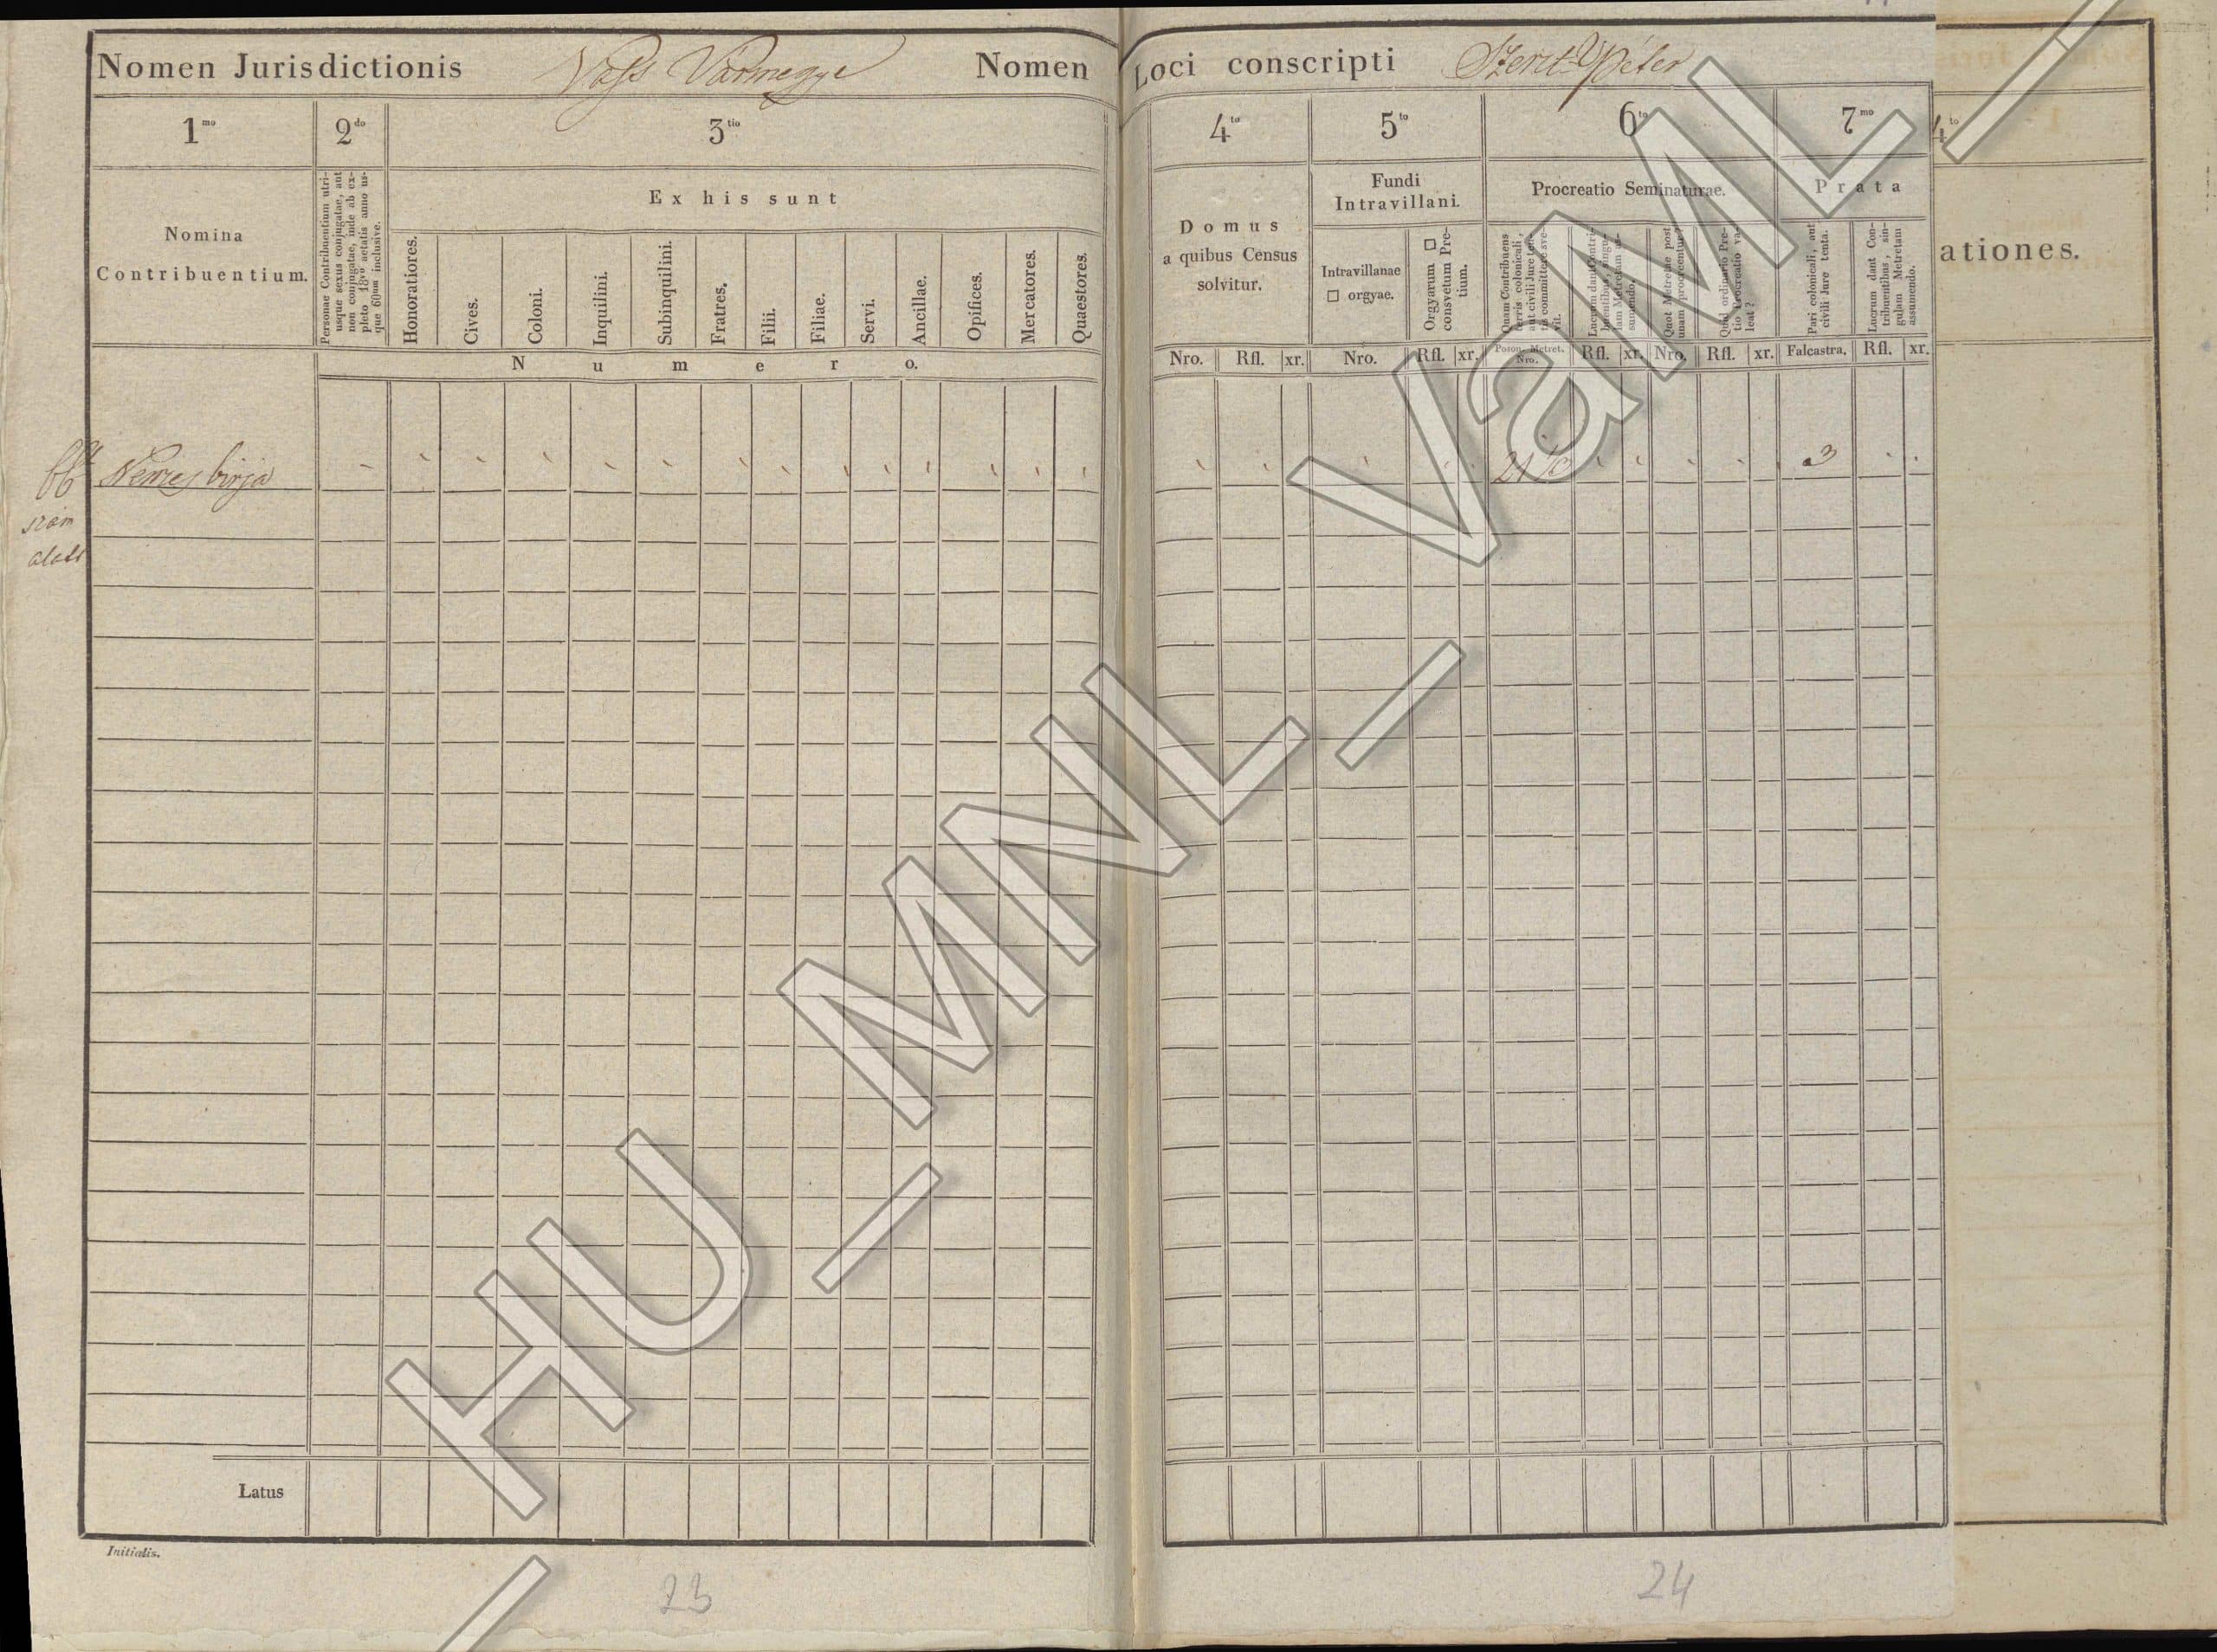 Nomen Jurisdictionis Vass Vármegye Nomen Loci conscripti Szent Péter
1mo 2do 3tio 4to 5to 6to 7mo 4to
Nomina
Contribuentium.
Personae Contribuentium utri-
usque sexus conjugatae, aut
non conjugatae, inde ab ex-
pleto 18vo aetatis anno us-
que 60um inclusive.
Ex his sunt
Honoratiores.
Cives.
Coloni.
Inquilini.
Subinquilini.
Fratres.
Filii.
Filiae.
Servi.
Ancillae.
Opifices.
Mercatores.
Quaestores.
Numero.
Domus
a quibus Census
solvitur.
Fundi
Intravillani.
Intravillanae
□ orgyae.
Orgyarum □
consvetum Pre-
tium.
Procreatio Seminaturae.
Quam Contribuens
terris colonicali,
aut civili Jure ten-
tis committere sve-
vit.
Lucrum dant Contri-
buentibus, singu-
lam Metretam as-
sumendo.
Quot Metretae post
unam procreentur?
Quid ordinario Pre-
tio Procreatio va-
leat?
Prata
Pari colonicali, aut
civili Jure tenta.
Lucrum dant Con-
tribuentibus, sin-
gulam Metretam
assumendo.
ationes.
Nro. Rfl. xr. Nro. Rfl. xr. Poson. Metret. Nro. Rfl. xr. Nro. Rfl. xr. Falcastra. Rfl. xr.
66 Nemes birja 3
szám
alatt
Latus
Initialis.
23 24
HU_MNL_VaML_